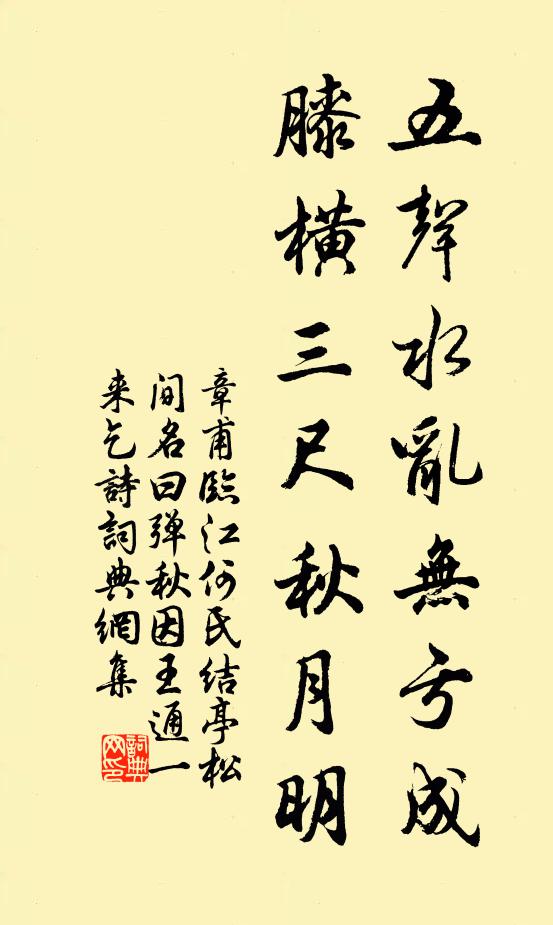 五聲水亂無亏成
膝橫三尺秋月明
章甫臨江何民结亭松
间名曰弹秋因王通一
来乞詩詞典網集
詞典網印